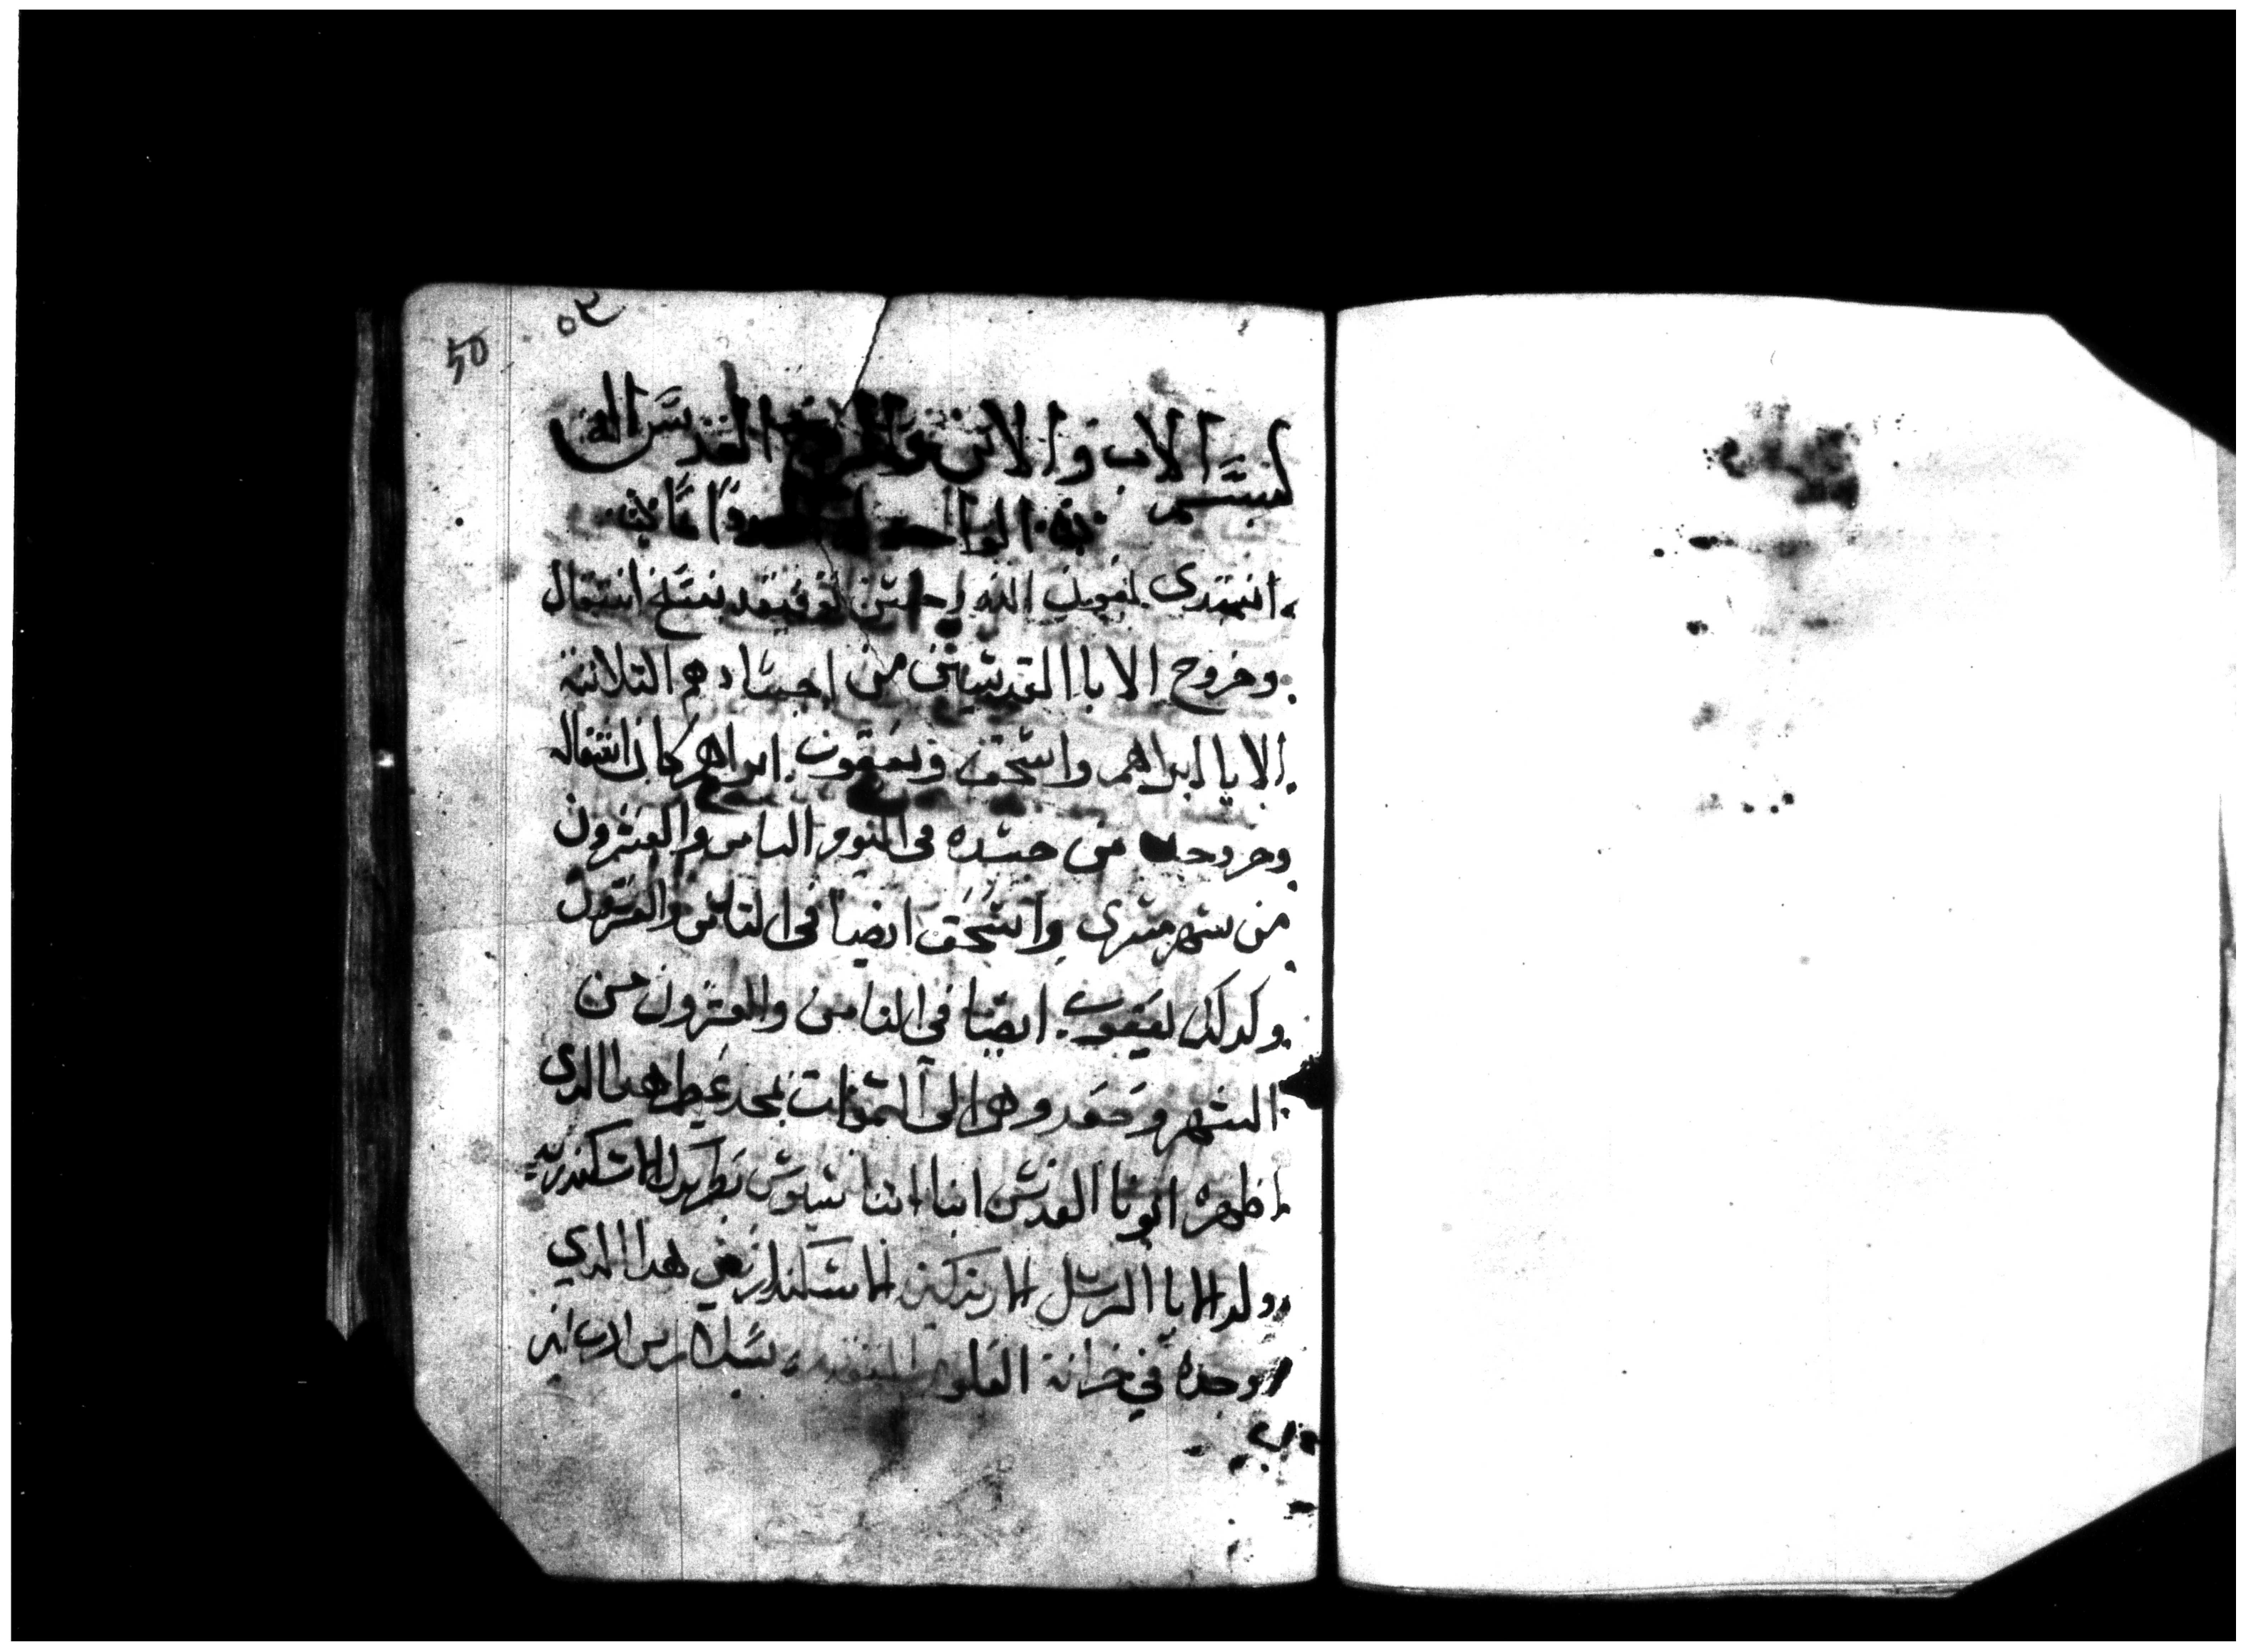 ٥٢
50
بسم الاب والابن والروح القدس الاله
الواحد
نبتدي بمعونة الله وحسن توفيقه بنسخ انتقال
وخروج الابا القديسين من اجسادهم التلاتة
الابا ابراهيم واسحق ويعقوب. ابراهيم كان انتقاله
وخروجه من جسده في اليوم التامن والعشرون
من شهر مسرى واسحق ايضا في التامن والعشرون
وكدلك يعقوب. ايضا في التامن والعشرون من
الشهر وصعدوهم الى السموات بمجد عظيم هدا الدي
اظهره ابونا القديس انبا اتناسيوس بطريرك الاسكندرية
ولد الابا الرسل الاسكندر يعني هدا الدي
وجده في خزانة العلوم